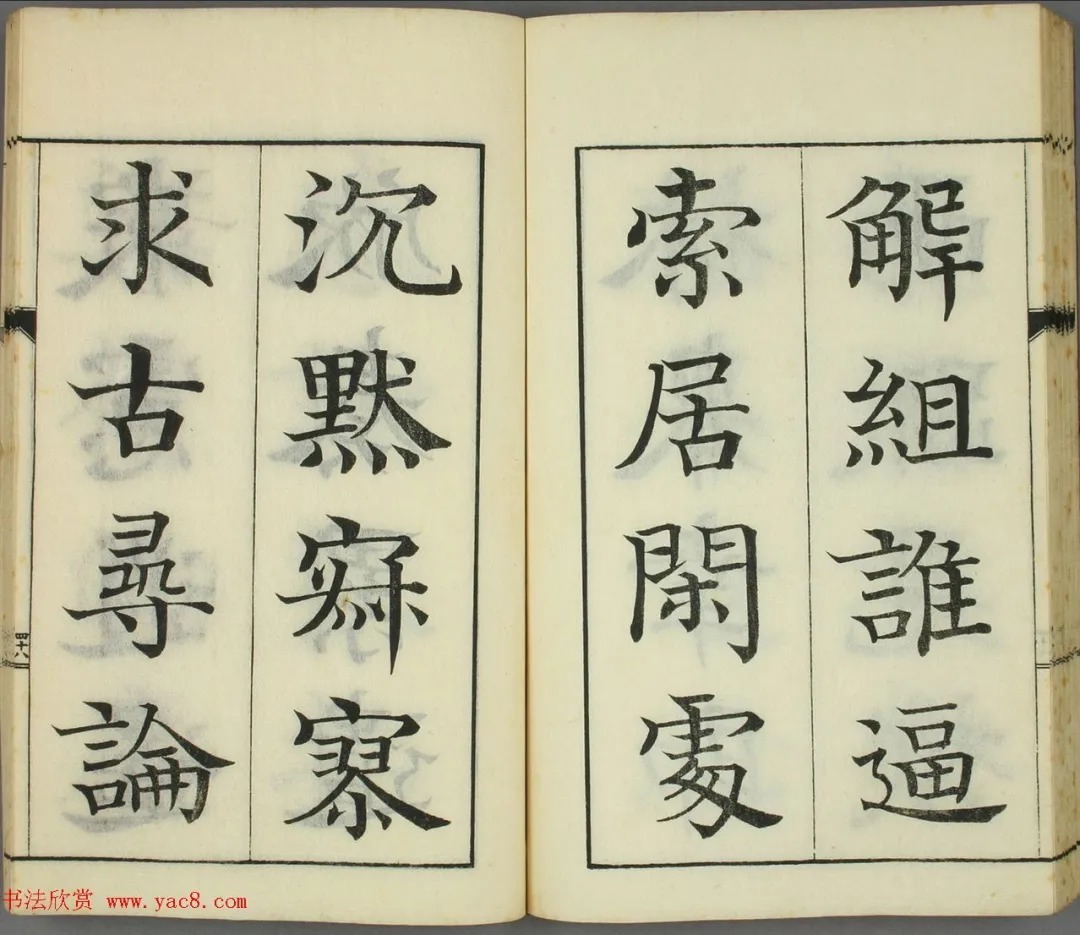 解組誰逼
索居閑處
沉黙寂寥
求古尋論
四十八
书法欣赏 www.yac8.com